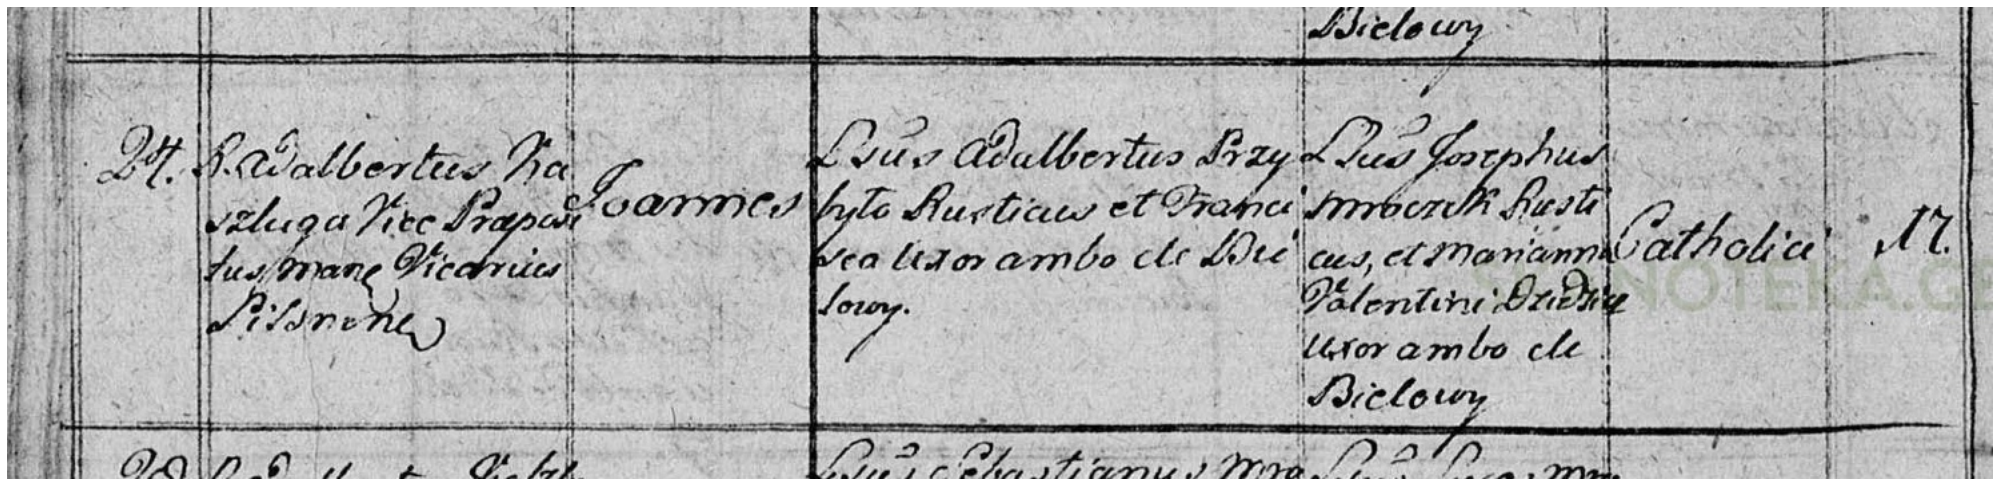 Bielowy
24. R. Adalbertus Ka
szluga Vice Praeposi
tus mane Vicarius
Pilsnens
Joannes
Lsus Adalbertus Przy
byto Rusticus et Franci
sca Uxor ambo de Bie
lowy.
LSus Josephus
Mroczek Rusti
cus, et Marianna
Valentini
Uxor ambo de
Bielowy
Catholici
17.
Sebastianus